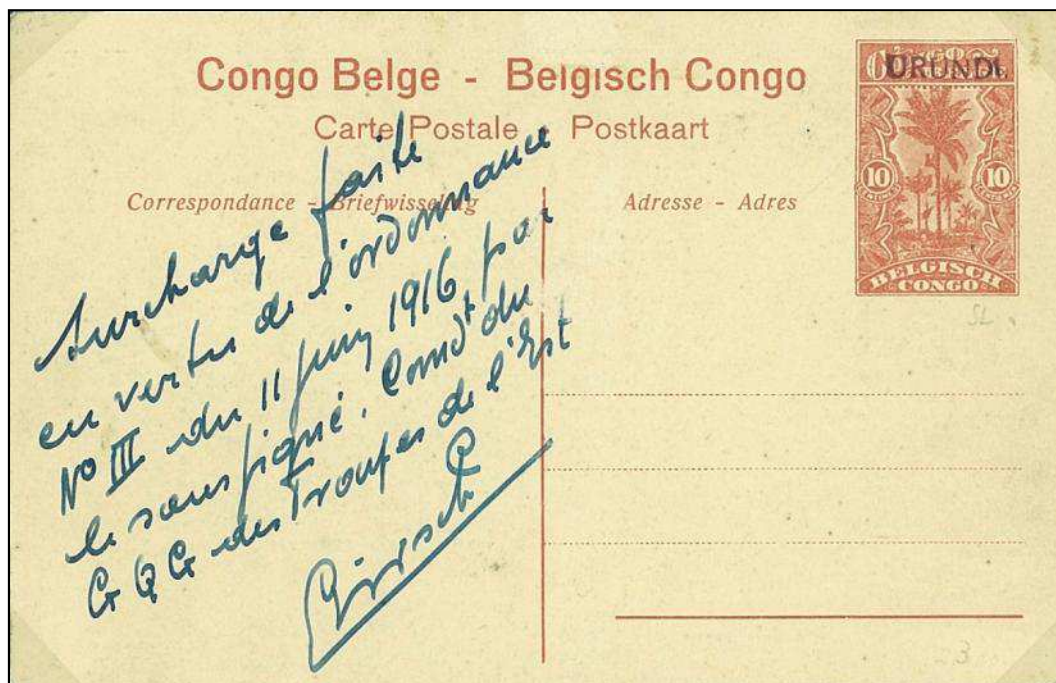 Congo Belge - Belgisch Congo
Carte Postale - Postkaart
Correspondance - Briefwisseling
Adresse - Adres
URUNDI
10 10
BELGISCH
CONGO
Surcharge faite
en vertu de l'ordonnance
No III du 11 juin 1916, par
le soussigné, Comdt du
G Q G des Troupes de l'Est
SL
23